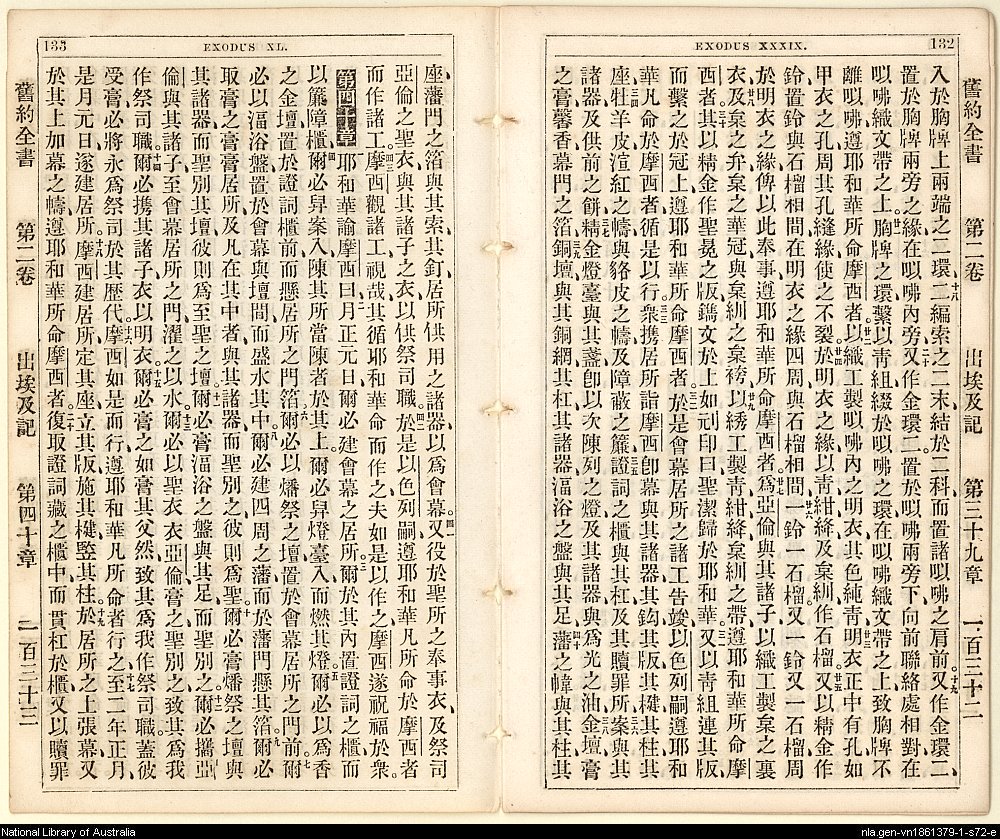 132
EXODUS XXXIX.
舊約全書 第二卷 出埃及記 第三十九章 一百三十二
入於胸牌上兩端之二環二編索之二末結於二科而置諸㕽咈之肩前又作金環二
置於胸牌兩旁之緣在㕽咈內旁又作金環二置於㕽咈兩旁下向前聯絡處相對在
㕽咈織文帶之上胸牌之環繫以靑組綴於㕽咈之環在㕽咈織文帶之上致胸牌不
離㕽咈遵耶和華所命摩西者以織工製㕽咈內之明衣其色純靑明衣正中有孔如
甲衣之孔周其孔縫緣使之不裂於明衣之緣以靑紺絳及枲紃作石榴又以精金作
鈴置鈴與石榴相間在明衣之緣四周與石榴相間一鈴一石榴又一鈴又一石榴周
於明衣之緣俾以此奉事遵耶和華所命摩西者爲亞倫與其諸子以織工製枲之裏
衣及枲之弁枲之華冠與枲紃之枲袴以綉工製靑紺絳枲紃之帶遵耶和華所命摩
西者其以精金作聖冕之版鐫文於上如刓印曰聖潔歸於耶和華又以靑組連其版
而繫之於冠上遵耶和華所命摩西者於是會幕居所之諸工告竣以色列嗣遵耶和
華凡命於摩西者循是以行衆攜居所詣摩西卽幕與其諸器其鈎其版其楗其柱其
座牡羊皮渲紅之幬與貉皮之幬及障蔽之簾證詞之櫃與其杠及其贖罪所案與其
諸器及供前之餅精金燈臺與其盞卽以次陳列之燈及其諸器與爲光之油金壇膏
之膏馨香幕門之箔銅壇與其銅網其杠其諸器湢浴之盤與其足藩之幃與其柱其
133
EXODUS XL.
座藩門之箔與其索其釘居所供用之諸器以爲會幕又役於聖所之奉事衣及祭司
亞倫之聖衣與其諸子之衣以供祭司職於是以色列嗣遵耶和華凡所命於摩西者
而作諸工摩西觀諸工視哉其循耶和華命而作之夫如是以作之摩西遂祝福於衆
第四十章 耶和華諭摩西曰月正元日爾必建會幕之居所爾於其內置證詞之櫃而
以簾障櫃爾必舁案入陳其所當陳者於其上爾必舁燈臺入而燃其燈爾必以香
之金壇置於證詞櫃前而懸居所之門箔爾必以燔祭之壇置於會幕居所之門前爾
必以湢浴盤置於會幕與壇間而盛水其中爾必建四周之藩而於藩門懸其箔爾必
取膏之膏膏居所及凡在其中者與其諸器而聖別之彼則爲聖爾必膏燔祭之壇與
其諸器而聖別其壇彼則爲至聖之壇爾必膏湢浴之盤與其足而聖別之爾必攜亞
倫與其諸子至會幕居所之門濯之以水爾必以聖衣衣亞倫膏之聖別之致其爲我
作祭司職爾必携其諸子衣以明衣爾必膏之如膏其父然致其爲我作祭司職蓋彼
受膏必將永爲祭司於其歷代摩西如是而行遵耶和華凡所命者行之至二年正月
是月元日遂建居所摩西建居所定其座立其版施其楗竪其柱於居所之上張幕又
於其上加幕之幬遵耶和華所命摩西者復取證詞藏之櫃中而貫杠於櫃又以贖罪
舊約全書 第二卷 出埃及記 第四十章 一百三十三
National Library of Australia
nla.gen-vn1861379-1-s72-e